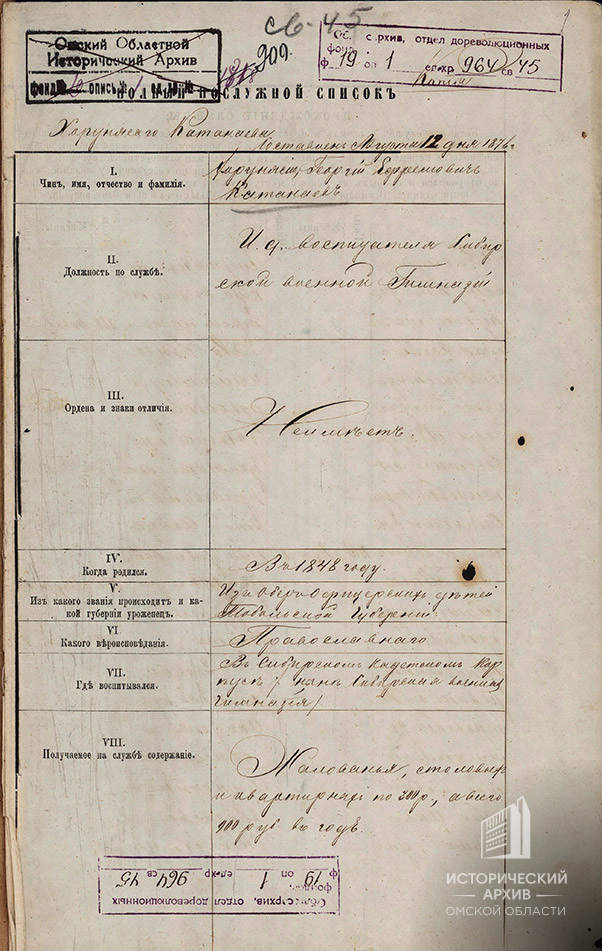 св-45
900.
Омский Областной
Исторический Архив
фонд №
опись №
Об. с архив, отдел дореволюционных
фонд.
ф 19 оп 1 ед-хр 964 св 45
Копия
ПОЛНЫЙ ПОСЛУЖНОЙ СПИСОКЪ
Хорунжаго Катанаева
Составленъ Августа 12 дня 1876 г
I.
Чинъ, имя, отчество и фамилія.
Хорунжій Георгій Ефремовичъ
Катанаевъ
II.
Должность по службѣ.
И. д. воспитателя Сибир
ской военной Гимназіи
III.
Ордена и знаки отличія.
Неимѣетъ.
IV.
Когда родился.
Въ 1848 году.
V.
Изъ какого званія происходитъ и ка-
кой губерніи уроженецъ.
Изъ Оберъ-Офицерскихъ дѣтей
Тобольской Губерніи
VI
Какого вѣроисповѣданія.
Православнаго
VII.
Гдѣ воспитывался.
Въ Сибирскомъ Кадетскомъ Кор
пусѣ / нынѣ Сибирская военная
гимназія /
VIII.
Получаемое на службѣ содержаніе.
Жалованья, столовыхъ
и квартирныхъ по 300 р, а всего
900 руб въ годъ.
архив, отдел дореволюционных
фонд.
ф 19 оп 1 ед-хр 964 св 45
ИСТОРИЧЕСКИЙ
АРХИВ
ОМСКОЙ ОБЛАСТИ